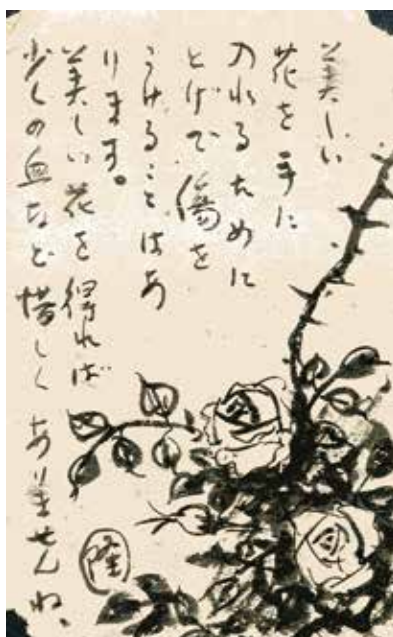 美しい
花を手に
入れるために
とげで傷を
うけることはあ
ります。
美しい花を得れば
少しの血など惜しくありませんね、
隆